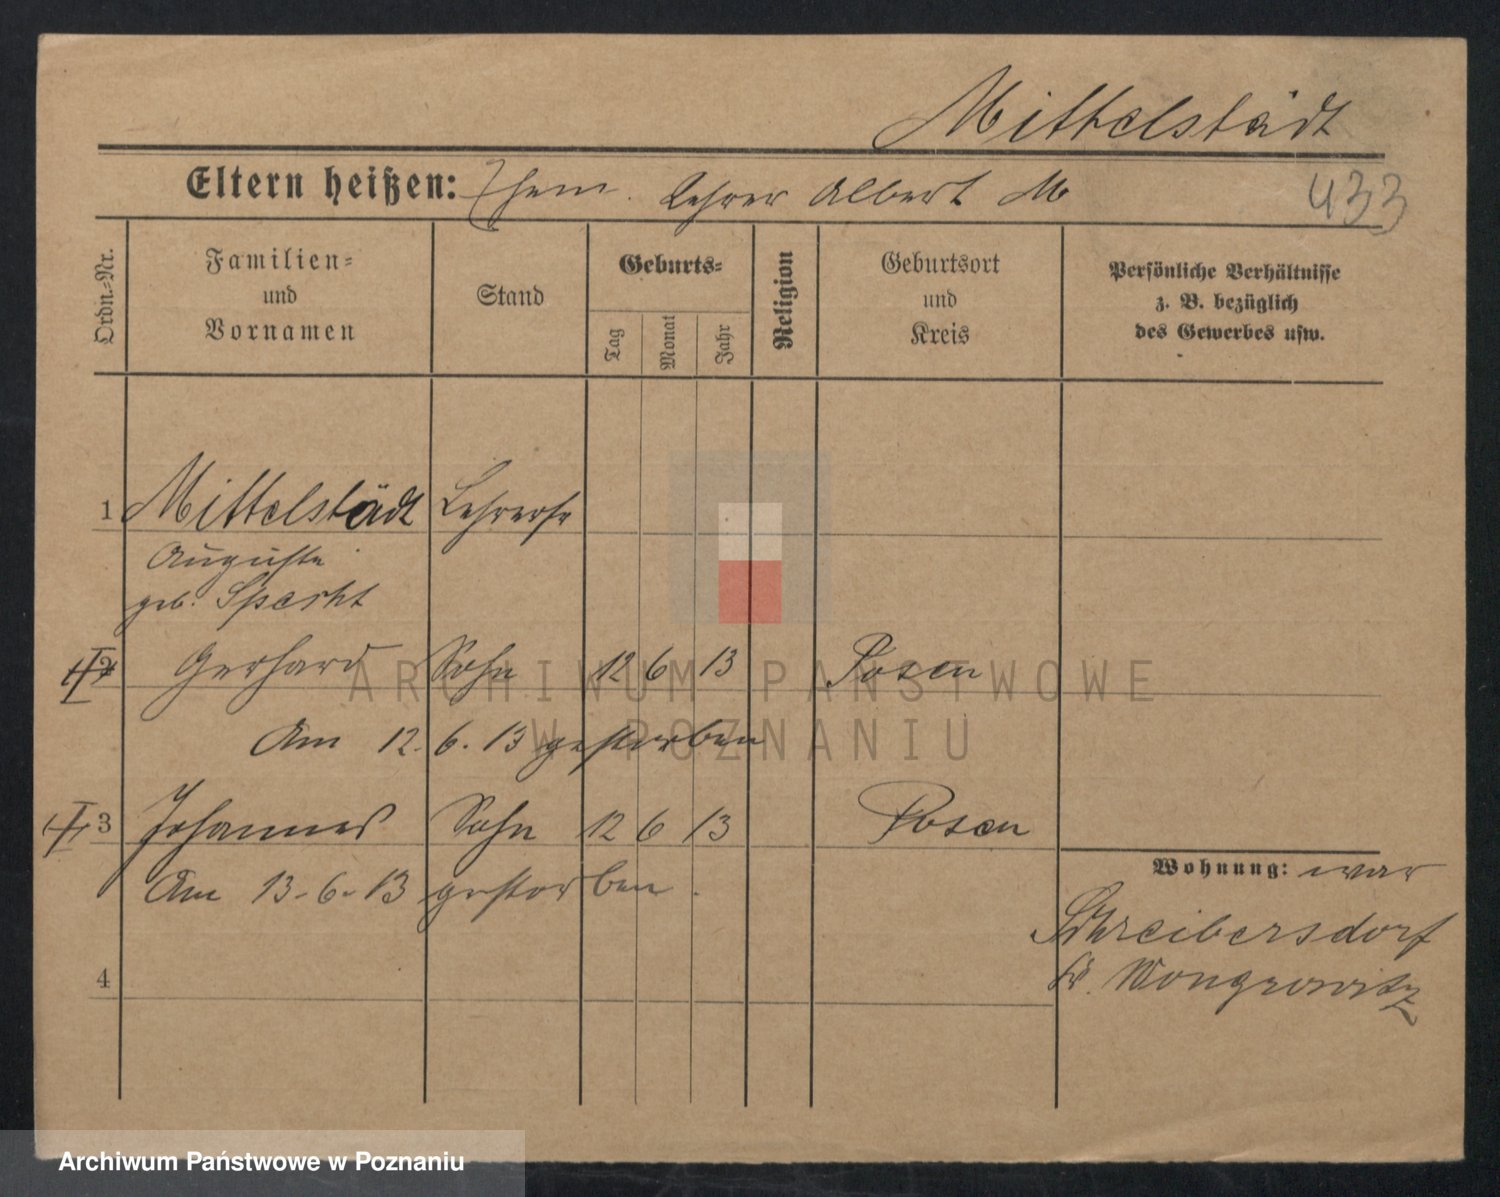 Mittelstädt
Eltern heißen: Ehem. Lehrer Albert M
433
Ordn.=Nr.
Familien=
und
Vornamen
Stand
Geburts=
Tag
Monat
Jahr
Religion
Geburtsort
und
Kreis
Persönliche Verhältnisse
z. B. bezüglich
des Gewerbes usw.
1 Mittelstädt Lehrerfr
Auguste
geb. Specht
2 Gerhard Sohn 12 6 13 Posen
Am 12. 6. 13 gestorben
3 Johannes Sohn 12 6 13 Posen
Am 13-6-13 gestorben.
Wohnung: war
Schreibersdorf
Kr. Wongrowitz
4
ARCHIWUM PAŃSTWOWE
W POZNANIU
Archiwum Państwowe w Poznaniu